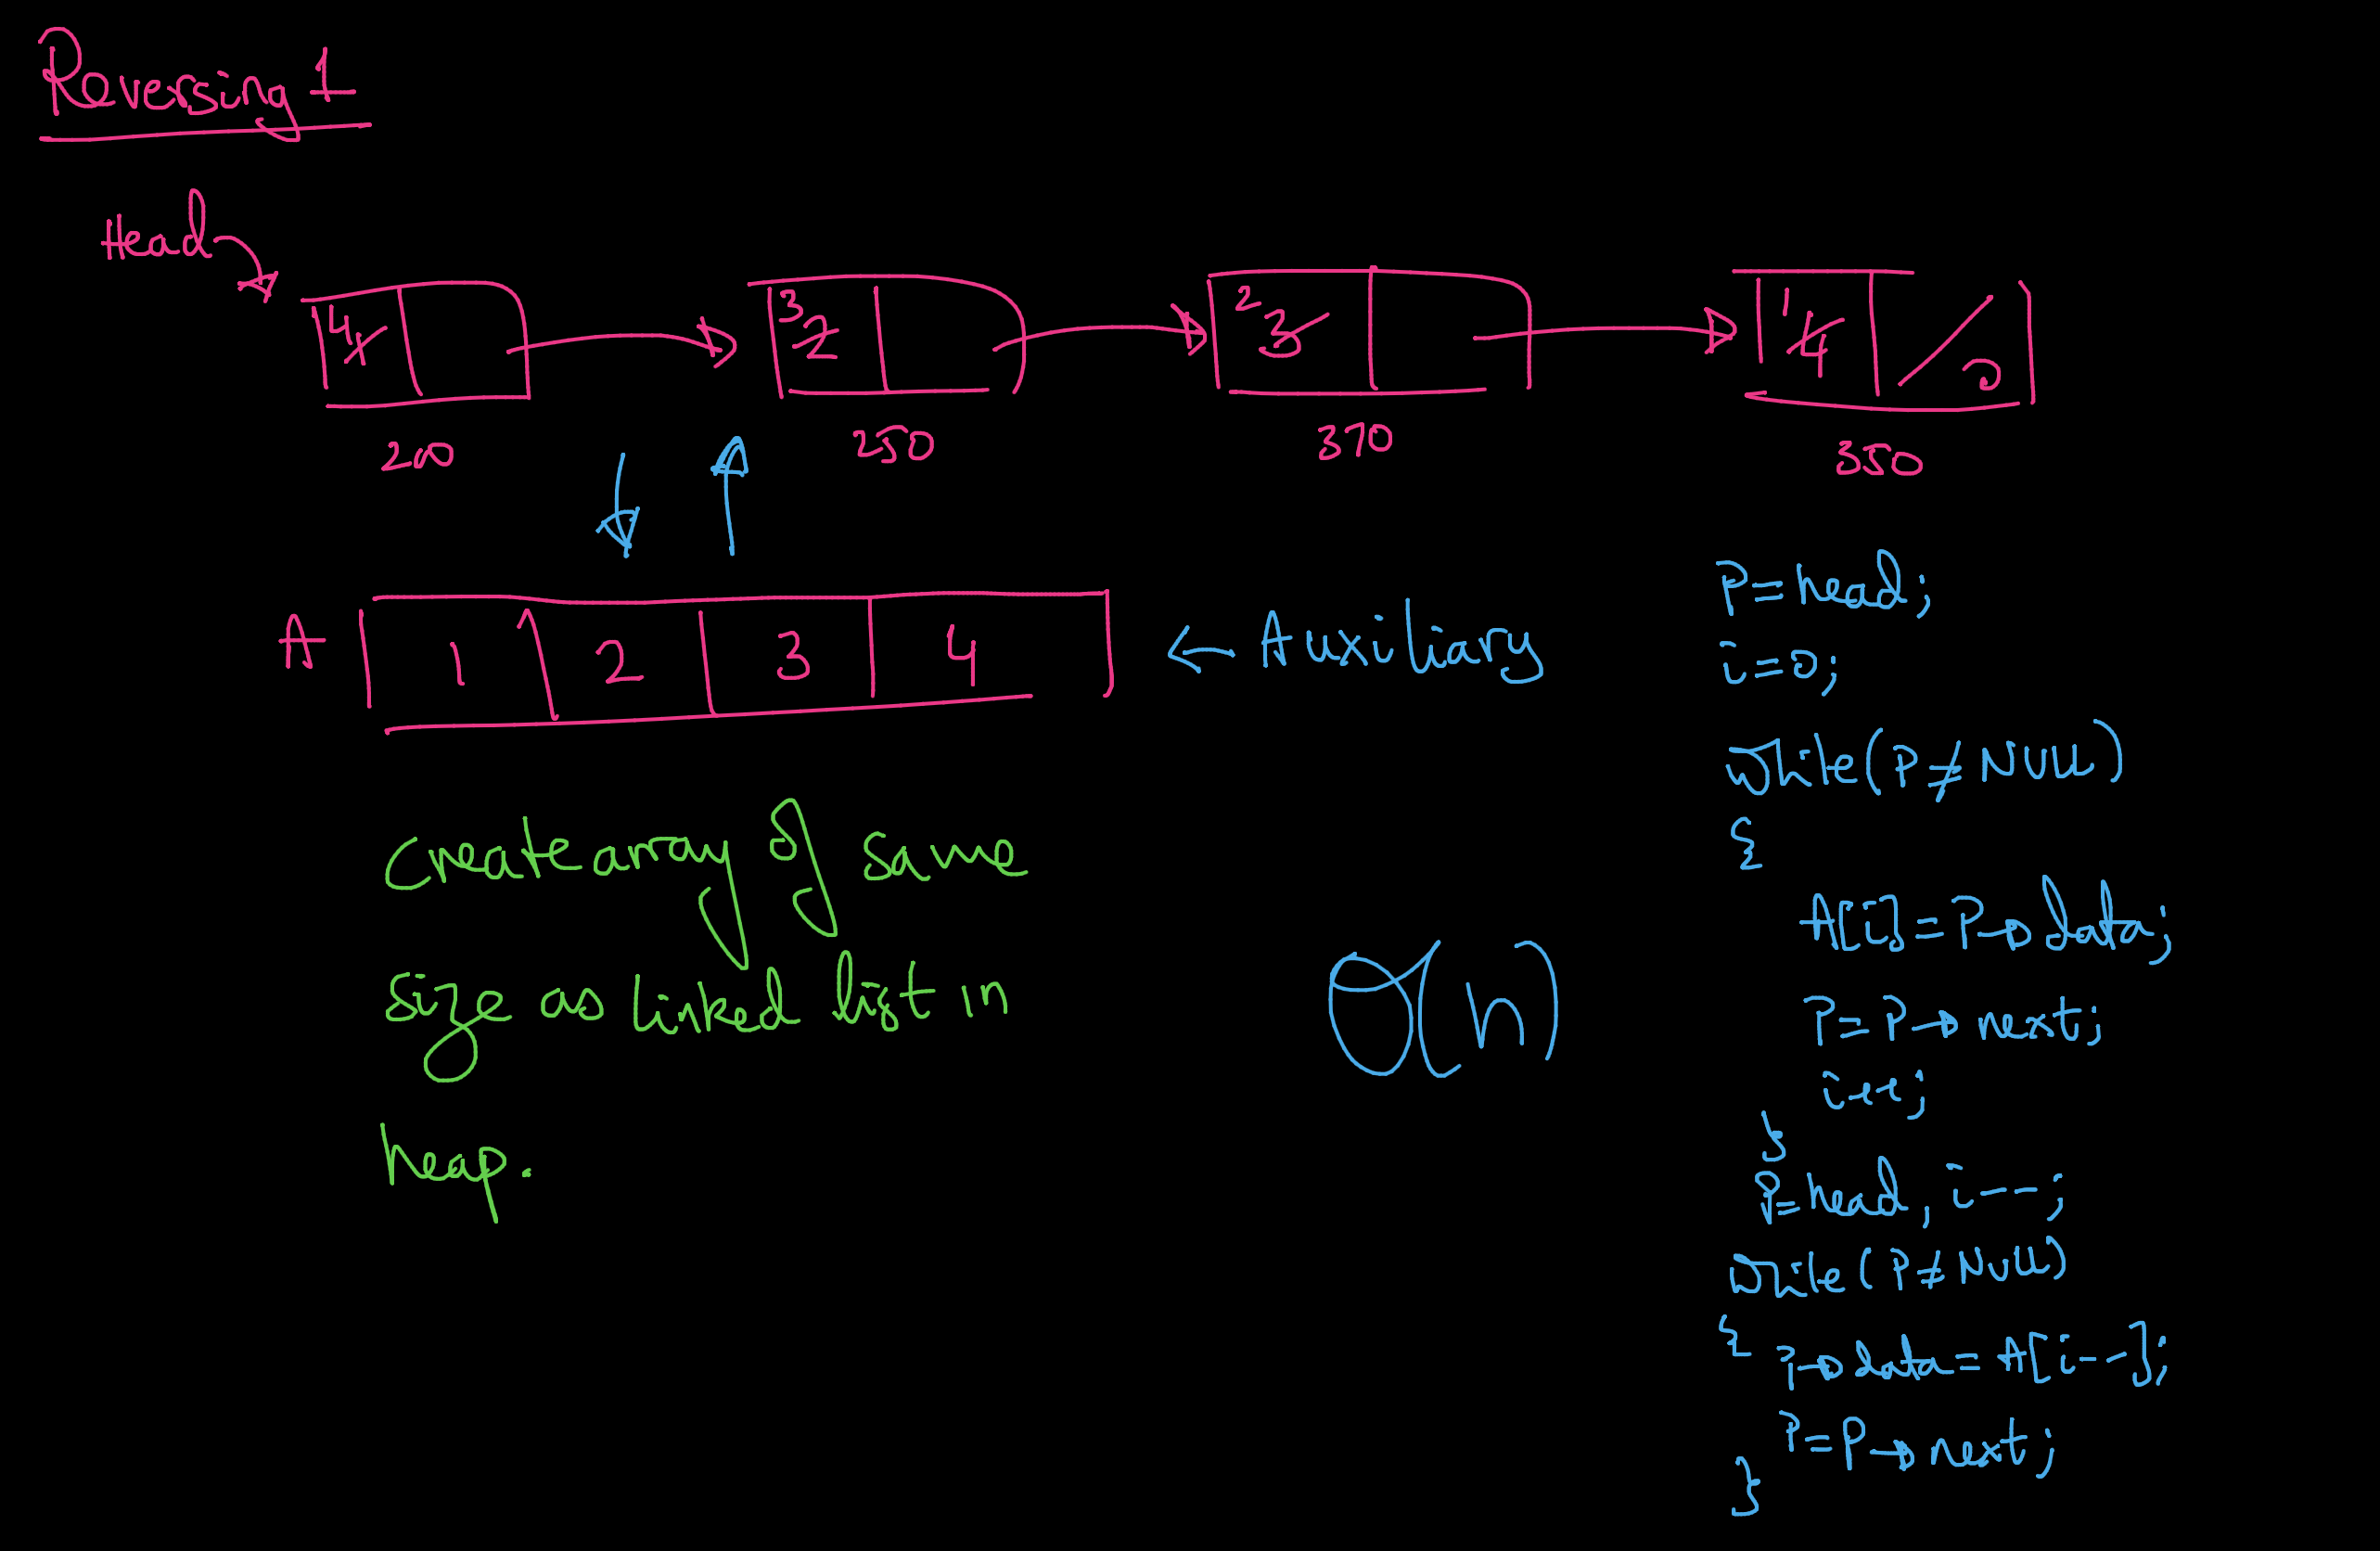 Reversing 1
Head
4 1
3 2
2 3
1 4 0
200
250
370
350
A 1 2 3 4
← Auxiliary
Create array of same
size as linked list in
heap.
O(n)
P=head;
i=0;
while(P≠NULL)
{
A[i]=P→data;
P=P→next;
i++;
}
P=head, i--;
while(P≠NULL)
{ P→data=A[i--];
P=P→next;
}